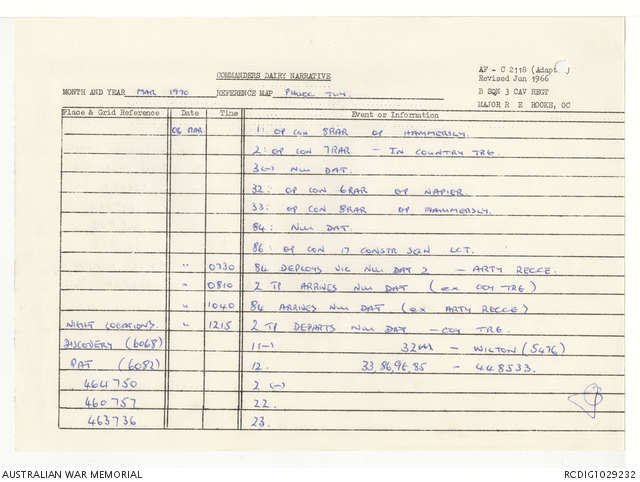 COMMANDERS DAIRY NARRATIVE
AF - C 2118 (Adapt )
Revised Jun 1966
MONTH AND YEAR MAR 1970 REFERENCE MAP PHUOC TUY. B SQN 3 CAV REGT
MAJOR R E ROOKS, OC
Place & Grid Reference Date Time Event or Information
06 MAR 1: OP CON 8RAR OP HAMMERSLY.
2: OP CON 7RAR - IN COUNTRY TRG.
3(-) NUI DAT.
32: OP CON 6RAR OP NAPIER.
33: OP CON 8RAR OP HAMMERSLY.
84: NUI DAT.
86: OP CON 17 CONSTR SQN LCT.
" 0730 84 DEPLOYS VIC NUI DAT 2 - ARTY RECCE.
" 0810 2 TP ARRIVES NUI DAT (ex COY TRG)
" 1040 84 ARRIVES NUI DAT (ex ARTY RECCE)
NIGHT LOCATIONS. " 1215 2 TP DEPARTS NUI DAT - COY TRG.
DISCOVERY (6068) 1(-) 32 - WILTON (5476)
PAT (6082) 12. 33,86,96,85 - 448533.
464750 2 (-)
460757 22.
463736 23.
AUSTRALIAN WAR MEMORIAL RCDIG1029232